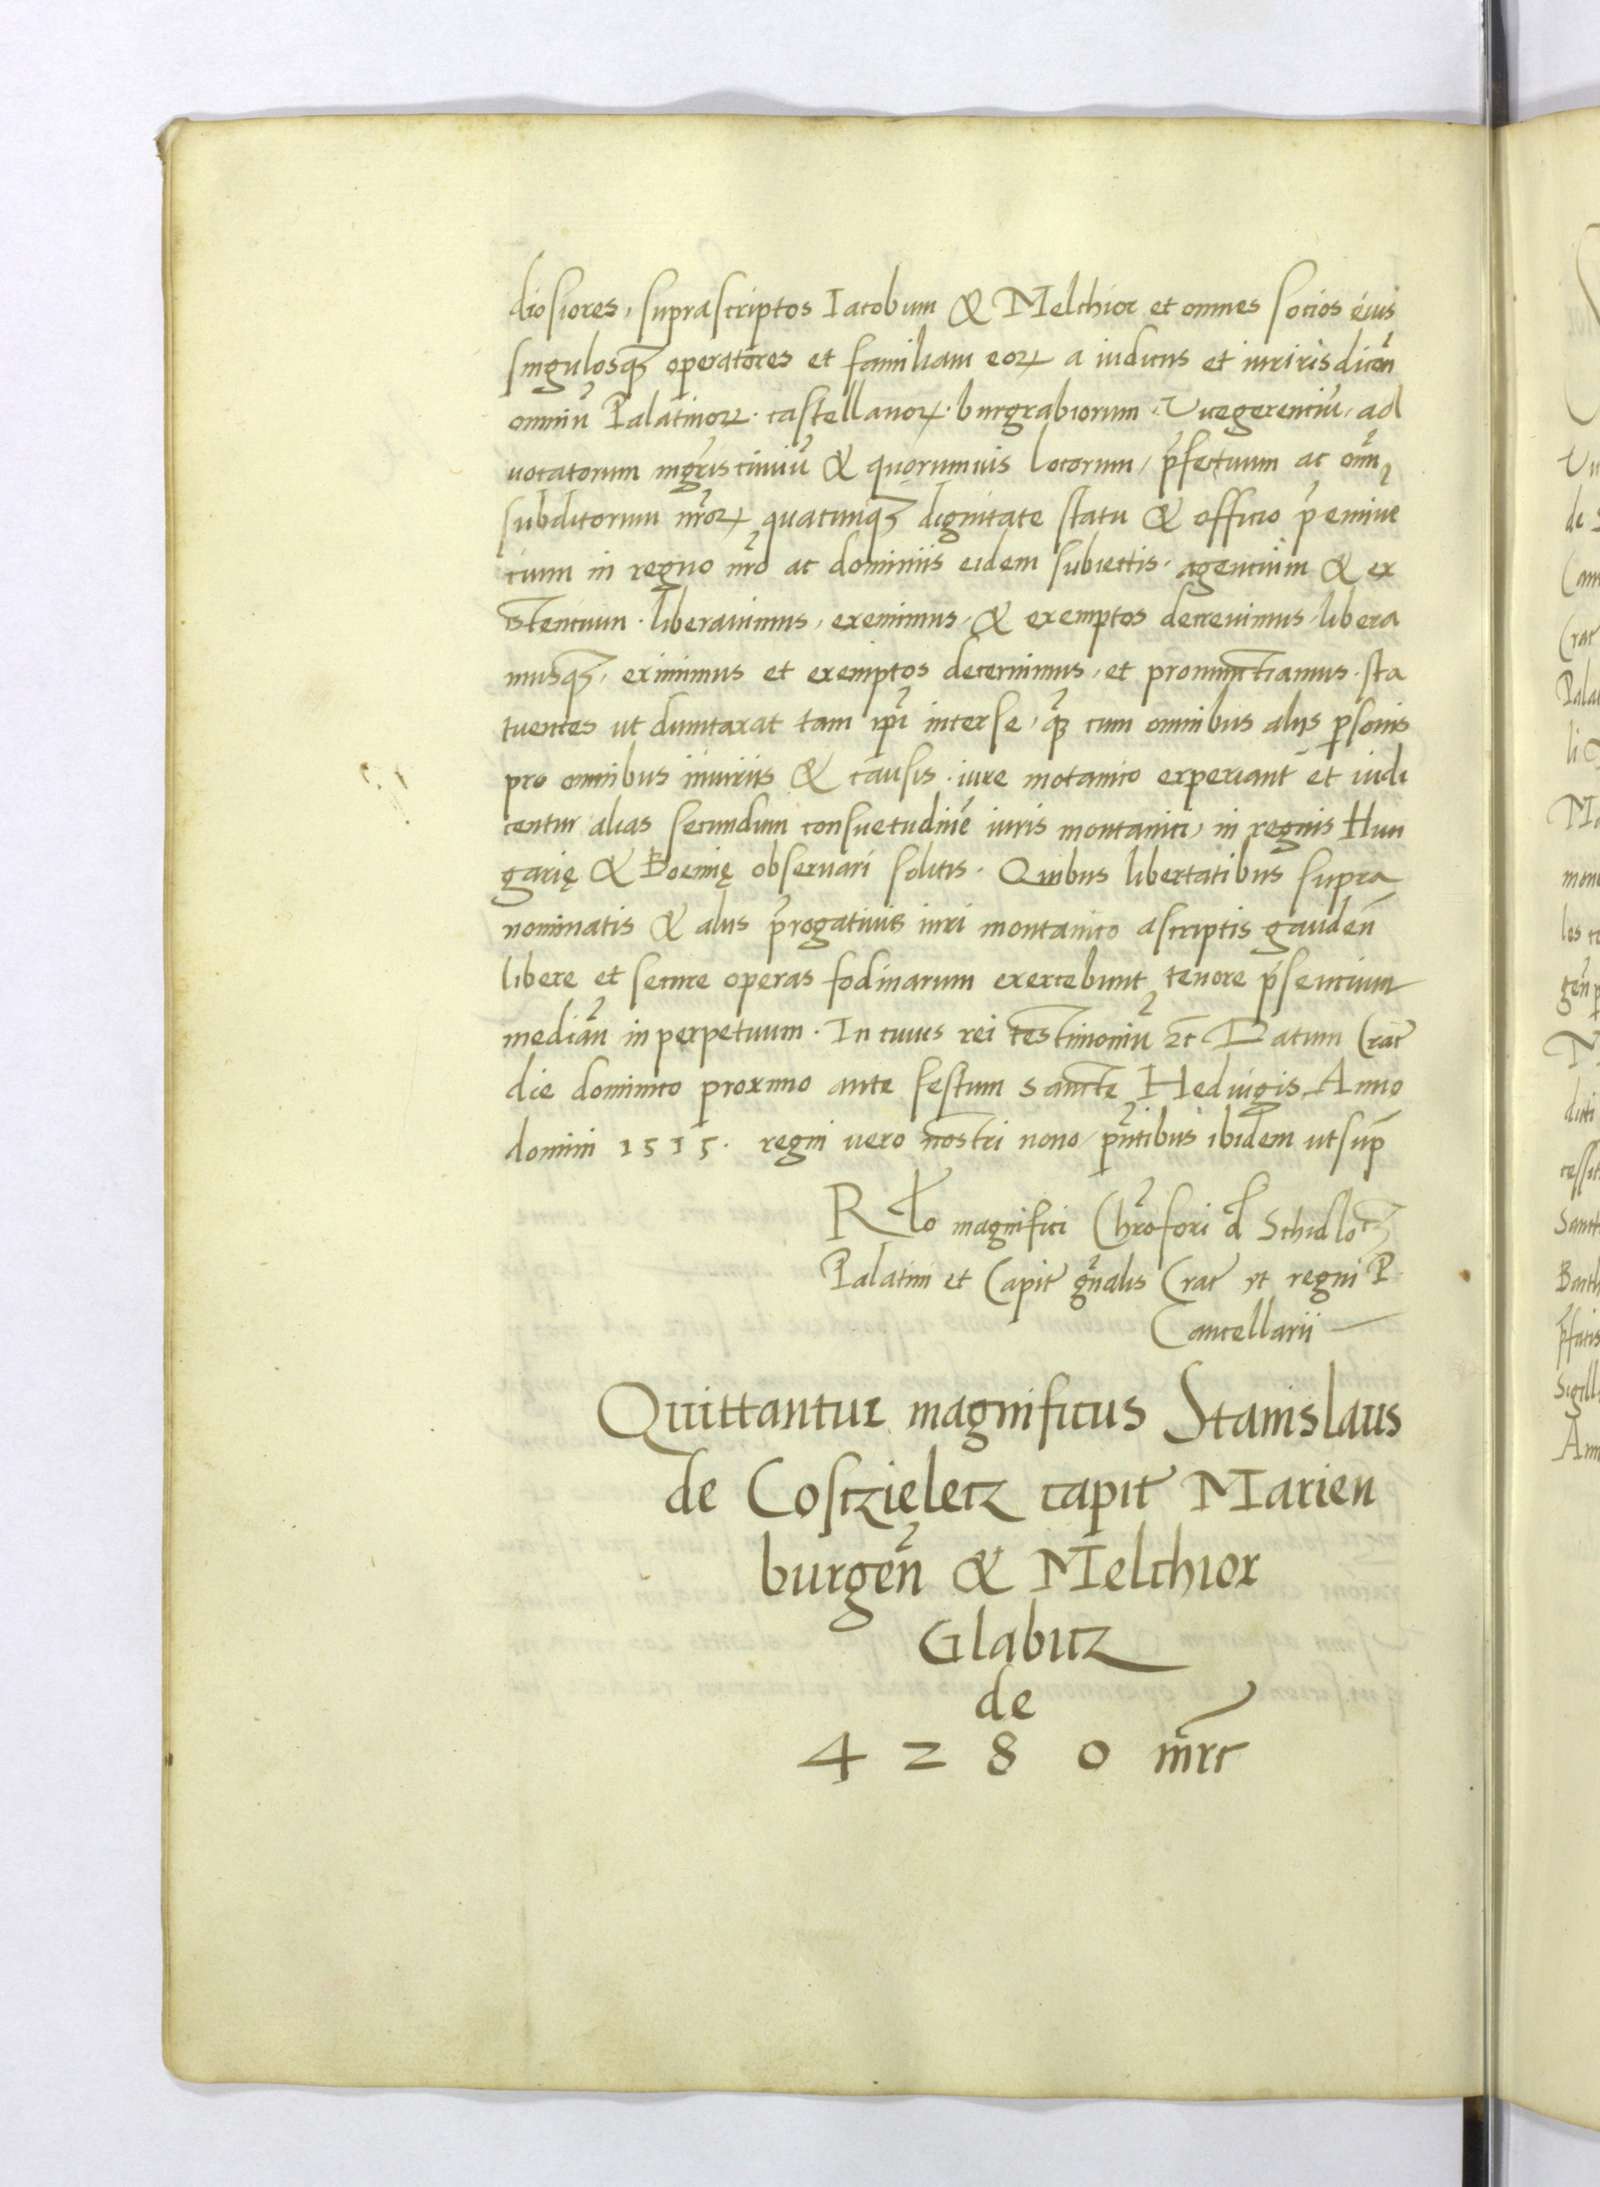 diosiores, suprascriptos Iacobum & Melchior et omnes socios eius
singulosqꝫ operatores et familiam eoꝝ a iudicijs et iuririsdicōn̄
omniū Palatinoꝝ. castellanoꝝ. burgrabiorum. Vicegerenciū, ad
vocatorum mgr̄is civiū & quorumuis locorum, p̄fectuum ac om̄
subditorum nr̄oꝝ quacunqꝫ dignitate statu & officio p̄eminē
cium in regno nr̄o ac dominiis eidem subiectis. agencium & ex
istencium. liberauimus, exemimus, & exemptos decreuimus, libera
musqꝫ, eximimus et exemptos decernimus, et pronunctiamus. sta
tuentes ut dumtaxat tam ip̄i inter se, qꝫ cum omnibus alijs ꝑsonis
pro omnibus iniuriis & causis. iure motanico experiant̄ et iudi
centur alias secundum consuetudinē iuris montanici, in regnis Hun
garię & Boemię observari solitis. Quibus libertatibus supra
nominatis & aliis p̄rogativis iuri montanico ascriptis gauden̄
libere et secure operas fodinarum exercebunt tenore p̄sencium
median̄ in perpetuum. In cuius rei testimoniū ꝛc Datum Crac̄
die dominico proximo ante festum sancte Hedvigis Anno
domini 1515. regni vero nostri nono, pn̄tibus ibidem ut sup̄
Rl̄o magnifici Chr̄ofori d̄ Schidlocz
Palatini et Capit̄ gn̄alis Crac̄ et regni P.
Cancellarii
Quittantur magnificus Stanislaus
de Cosczieletz capit̄ Marien
burgen̄ & Melchior
Glabitz
de
4 2 8 0 mr̄c